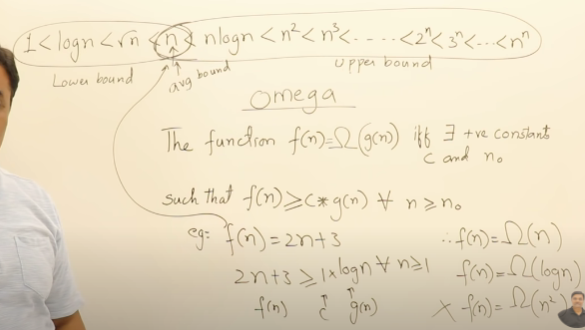 1 < logn < √n < n < nlogn < n² < n³ < ----- < 2ⁿ < 3ⁿ < --- < nⁿ
Lower bound avg bound upper bound
Omega
The function f(n)=Ω(g(n)) iff ∃ +ve constants
c and n₀
such that f(n) ≥ c*g(n) ∀ n ≥ n₀
eg: f(n) = 2n+3
2n+3 ≥ 1×logn ∀ n≥1
f(n) c g(n)
∴ f(n) = Ω(n)
f(n) = Ω(logn)
× f(n) = Ω(n²)